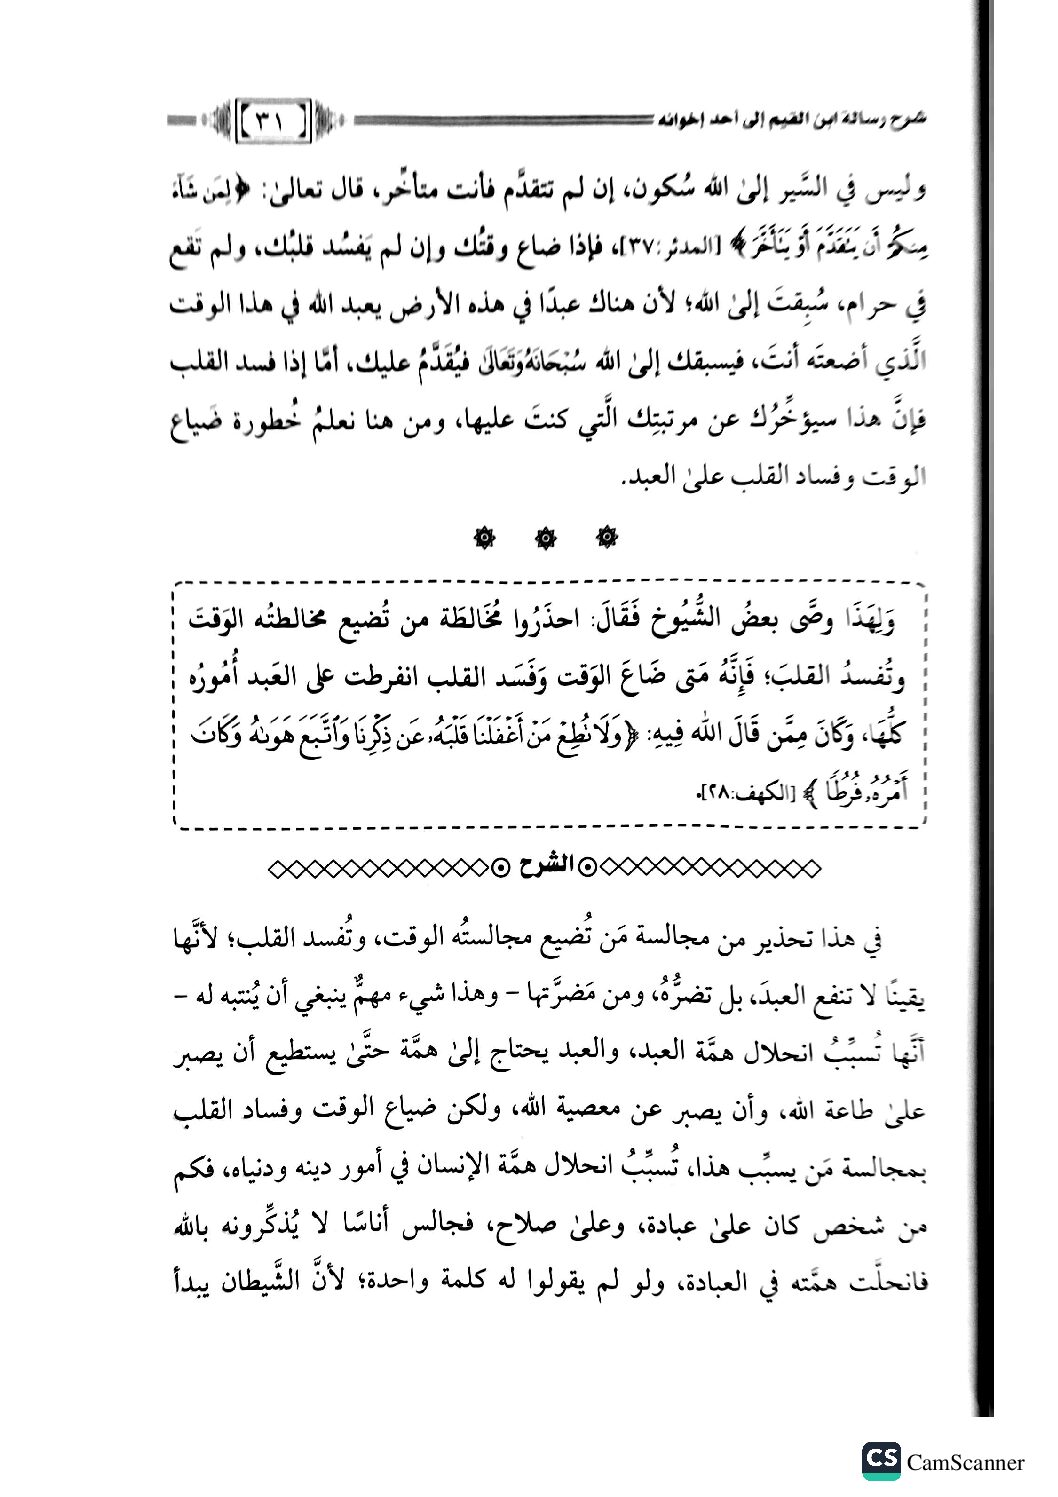 شرح رسالة ابن القيم إلى أحد إخوانه
٣١
وليس في السَّير إلىٰ الله سُكون، إن لم تتقدَّم فأنت متأخِّر، قال تعالىٰ: ﴿لِمَن شَآءَ
مِنكُمْ أَن يَتَقَدَّمَ أَوْ يَتَأَخَّرَ﴾ [المدثر:٣٧]، فإذا ضاع وقتُك وإن لم يَفسُد قلبُك، ولم تَقع
في حرام، سُبِقتَ إلىٰ الله؛ لأن هناك عبدًا في هذه الأرض يعبد الله في هذا الوقت
الَّذي أضعتَه أنتَ، فيسبقك إلىٰ الله سُبْحَانَهُوَتَعَالَى فيُقَدَّمُ عليك، أمَّا إذا فسد القلب
فإنَّ هذا سيؤخِّرُك عن مرتبتِك الَّتي كنتَ عليها، ومن هنا نعلمُ خُطورة ضَياع
الوقت وفساد القلب علىٰ العبد.
وَلِهَذَا وصَّى بعضُ الشُّيُوخ فَقَالَ: احذَرُوا مُخَالطَة من تُضيع مخالطتُه الوَقتَ
وتُفسدُ القلبَ؛ فَإِنَّهُ مَتى ضَاعَ الوَقت وَفَسَد القلب انفرطت على العَبد أُمُورُه
كلُّهَا، وَكَانَ مِمَّن قَالَ الله فِيهِ: ﴿وَلَا تُطِعْ مَنْ أَغْفَلْنَا قَلْبَهُۥ عَن ذِكْرِنَا وَٱتَّبَعَ هَوَىٰهُ وَكَانَ
أَمْرُهُۥ فُرُطًا﴾ [الكهف:٢٨].
الشرح
في هذا تحذير من مجالسة مَن تُضيع مجالستُه الوقت، وتُفسد القلب؛ لأنَّها
يقينًا لا تنفع العبدَ، بل تضرُّهُ، ومن مَضرَّتها - وهذا شيء مهمٌّ ينبغي أن يُنتبه له -
أنَّها تُسبِّبُ انحلال همَّة العبد، والعبد يحتاج إلىٰ همَّة حتَّىٰ يستطيع أن يصبر
علىٰ طاعة الله، وأن يصبر عن معصية الله، ولكن ضياع الوقت وفساد القلب
بمجالسة مَن يسبِّب هذا، تُسبِّبُ انحلال همَّة الإنسان في أمور دينه ودنياه، فكم
من شخص كان علىٰ عبادة، وعلىٰ صلاح، فجالس أناسًا لا يُذكِّرونه بالله
فانحلَّت همَّته في العبادة، ولو لم يقولوا له كلمة واحدة؛ لأنَّ الشَّيطان يبدأ
CS CamScanner